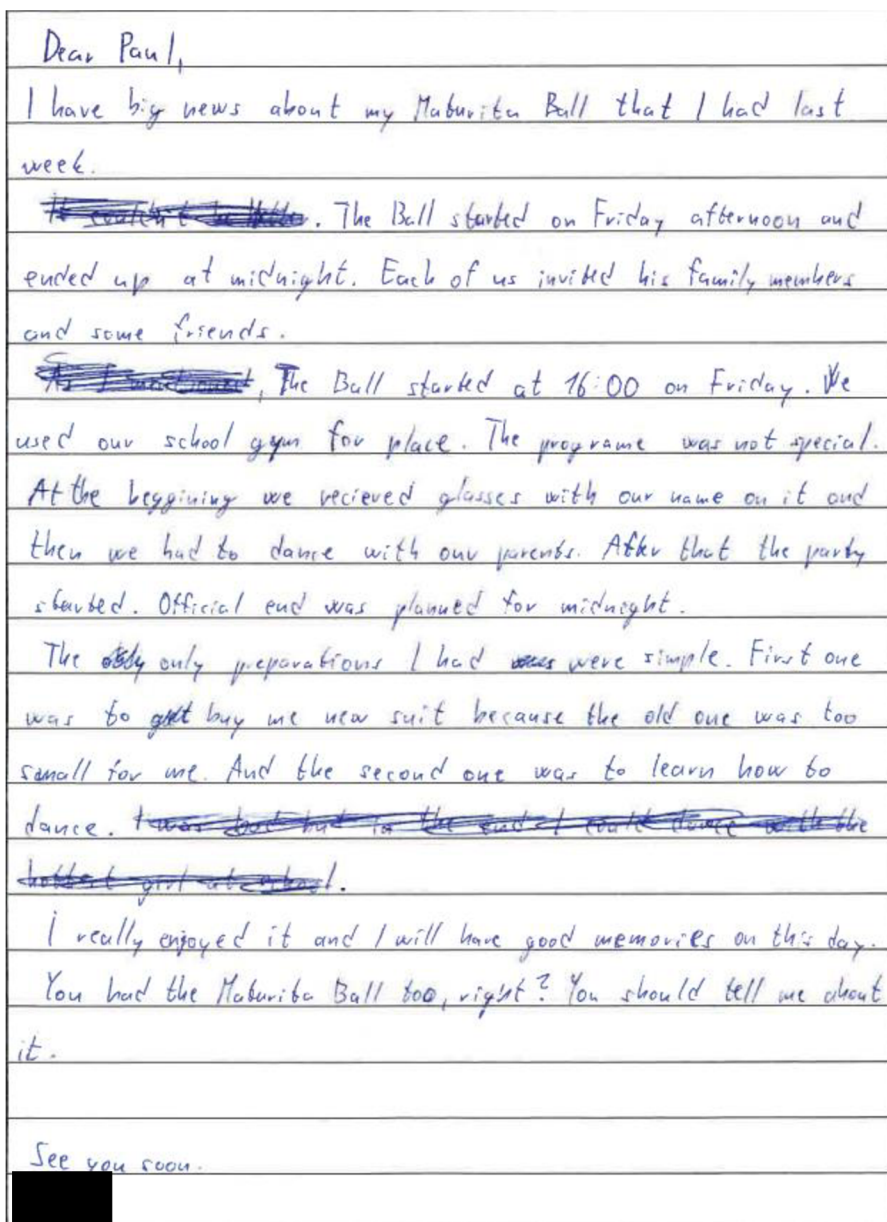 Dear Paul,
I have big news about my Maturita Ball that I had last
week.
The Ball started on Friday afternoon and
ended up at midnight. Each of us invited his family members
and some friends.
The Ball started at 16:00 on Friday. We
used our school gym for place. The programe was not special.
At the beggining we recieved glasses with our name on it and
then we had to dance with our parents. After that the party
started. Official end was planned for midnight.
The only preparations I had were simple. First one
was to buy me new suit because the old one was too
small for me. And the second one was to learn how to
dance. I was bad but in the end I could dance with the
hottest girl at school.
I really enjoyed it and I will have good memories on this day.
You had the Maturita Ball too, right? You should tell me about
it.
See you soon.